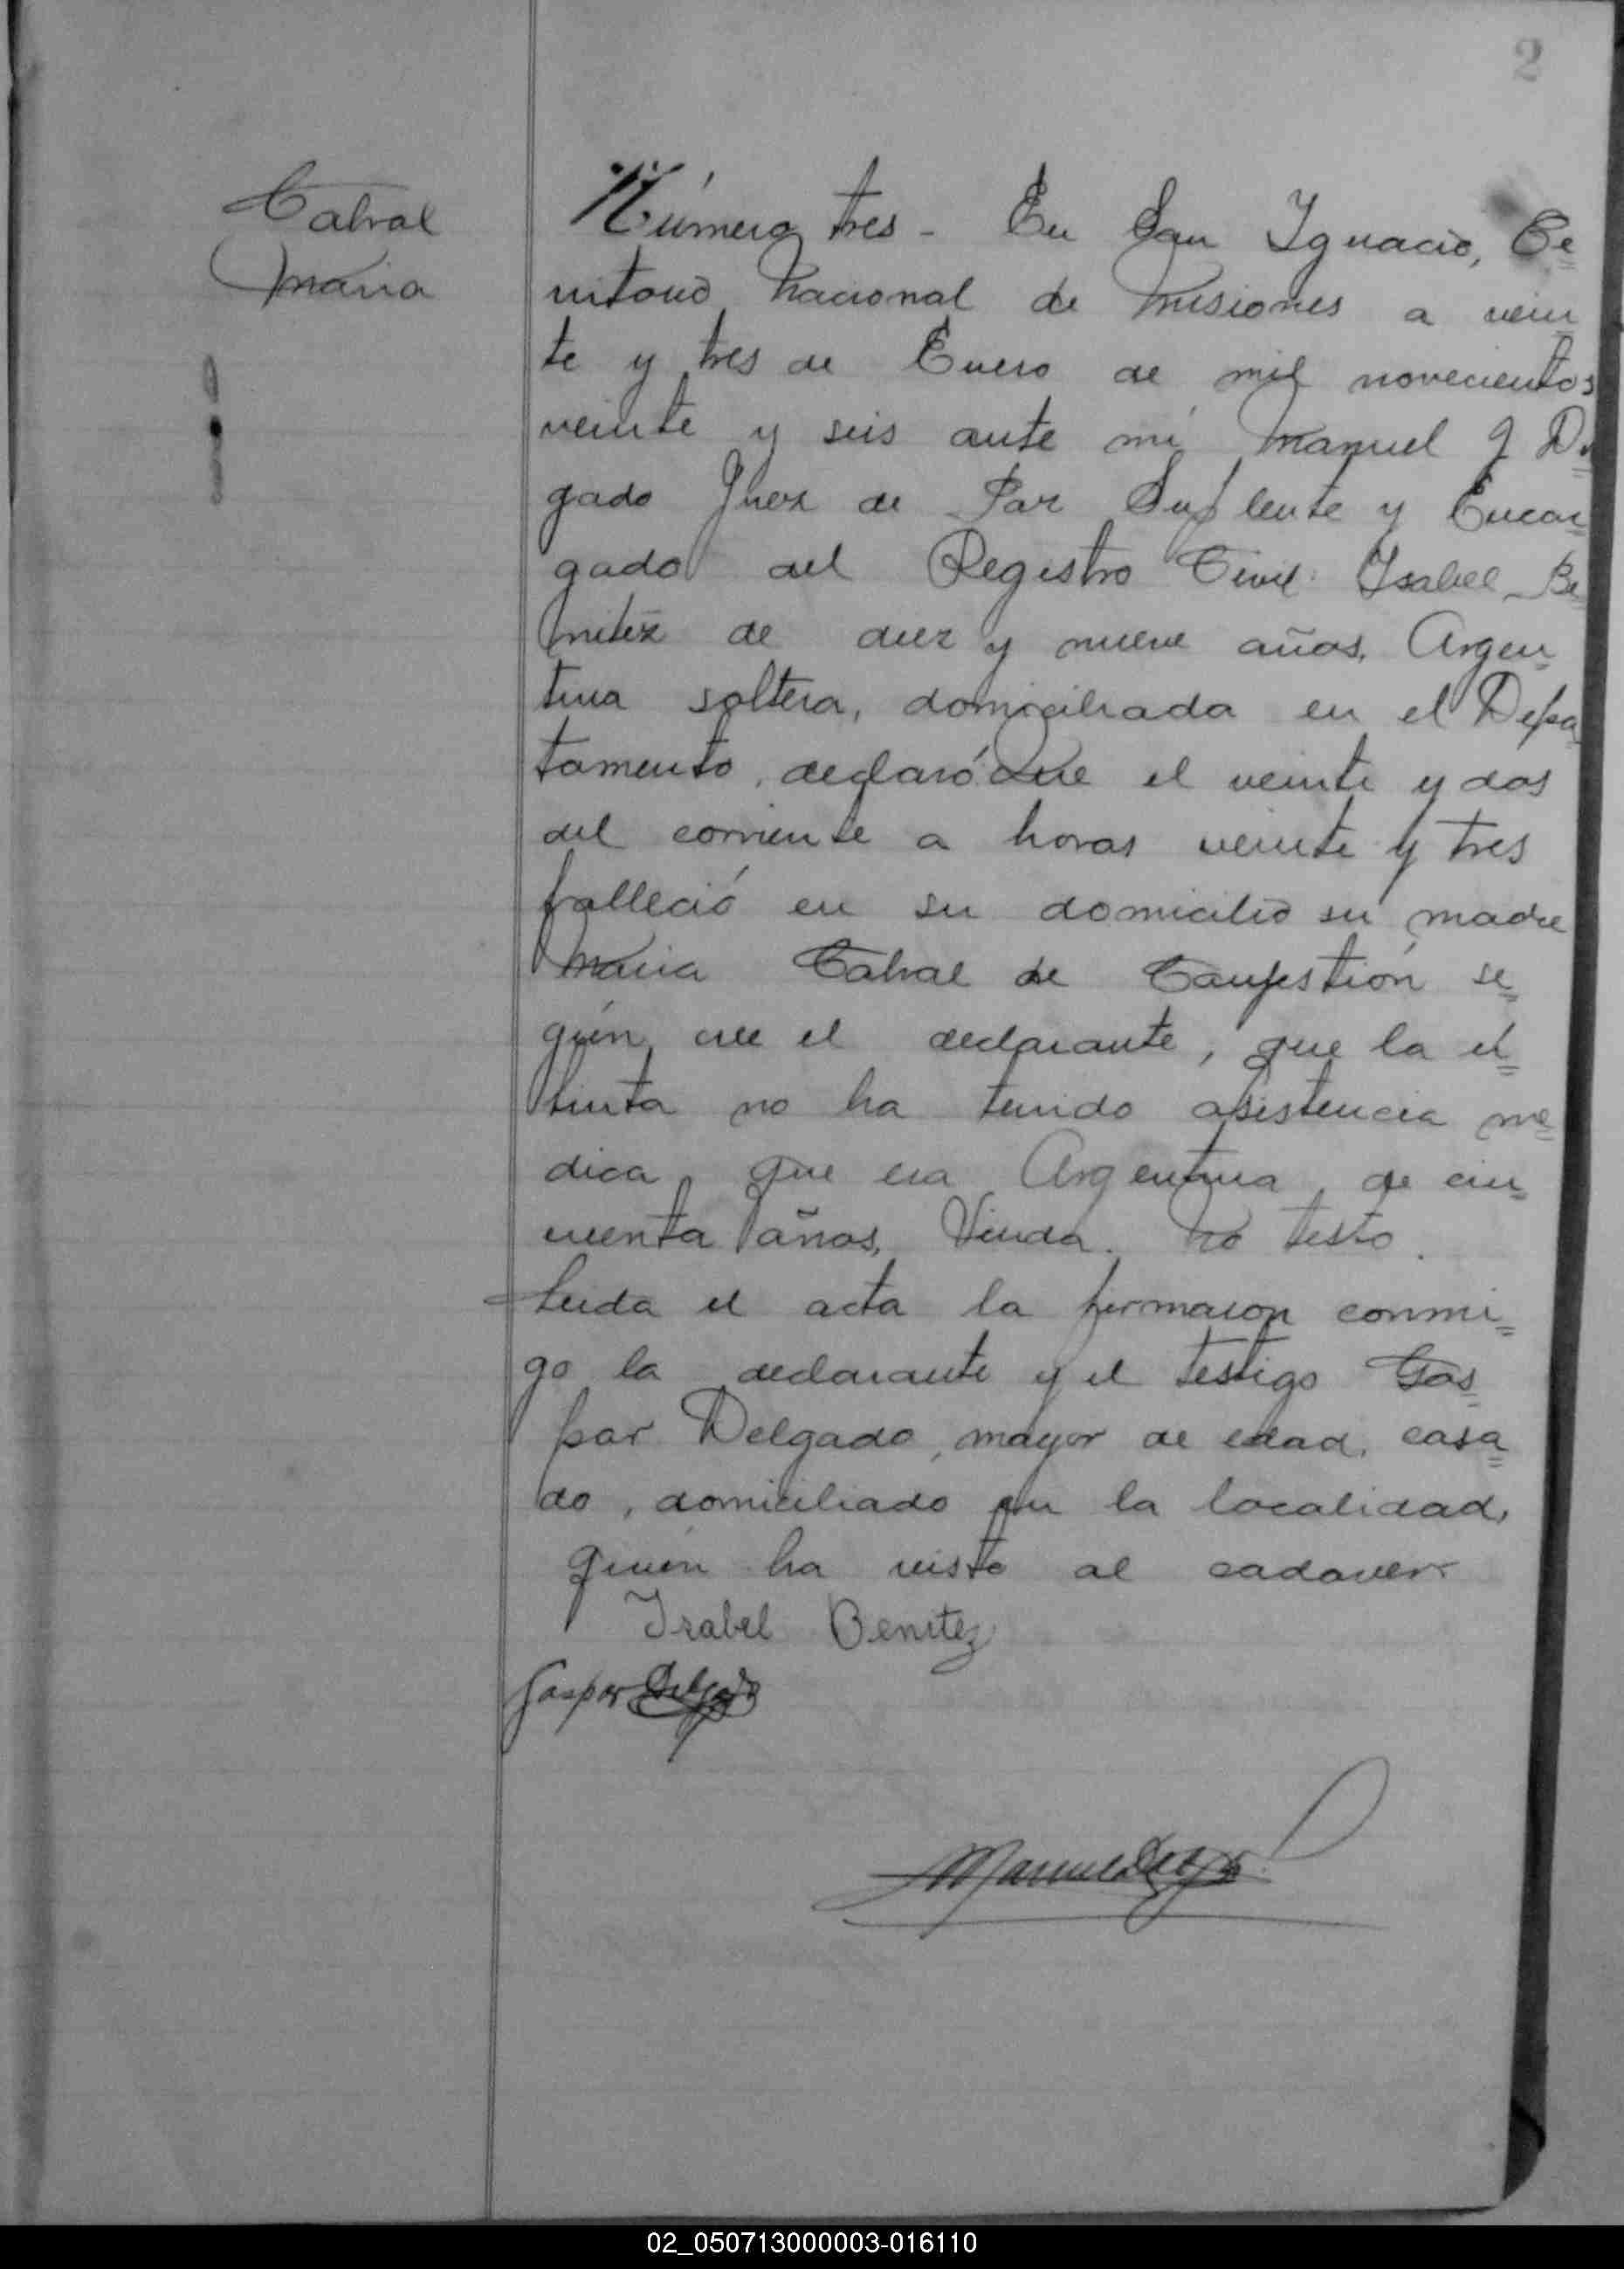 2
Cabral
Maria
Número tres - En San Ignacio, Te=
rritorio Nacional de Misiones a vein=
te y tres de Enero de mil novecientos
veinte y seis ante mí Manuel J
gado Juez de Paz Suplente y Encar=
gado del Registro Civil: Isabel Be=
nitéz de diez y nueve años, Argen=
tina soltera, domiciliada en el Depa=
tamento, declaró: Que el veinte y dos
del corriente a horas veinte y tres
falleció en su domicilio su madre
Maria Cabral de Conjestión se=
gún cree el declarante, que la éx=
tinta no ha tenido asistencia me=
dica, que era Argentina, de cin=
cuenta años, Viuda. No testo.
Leida el acta la firmaron conmi=
go la declarante y el testigo Gas=
par Delgado, mayor de edad, casa=
do, domiciliado en la localidad,
quién ha visto al cadaver
Isabel Benitez
Gaspar Delgado
Manuel
02_050713000003-016110